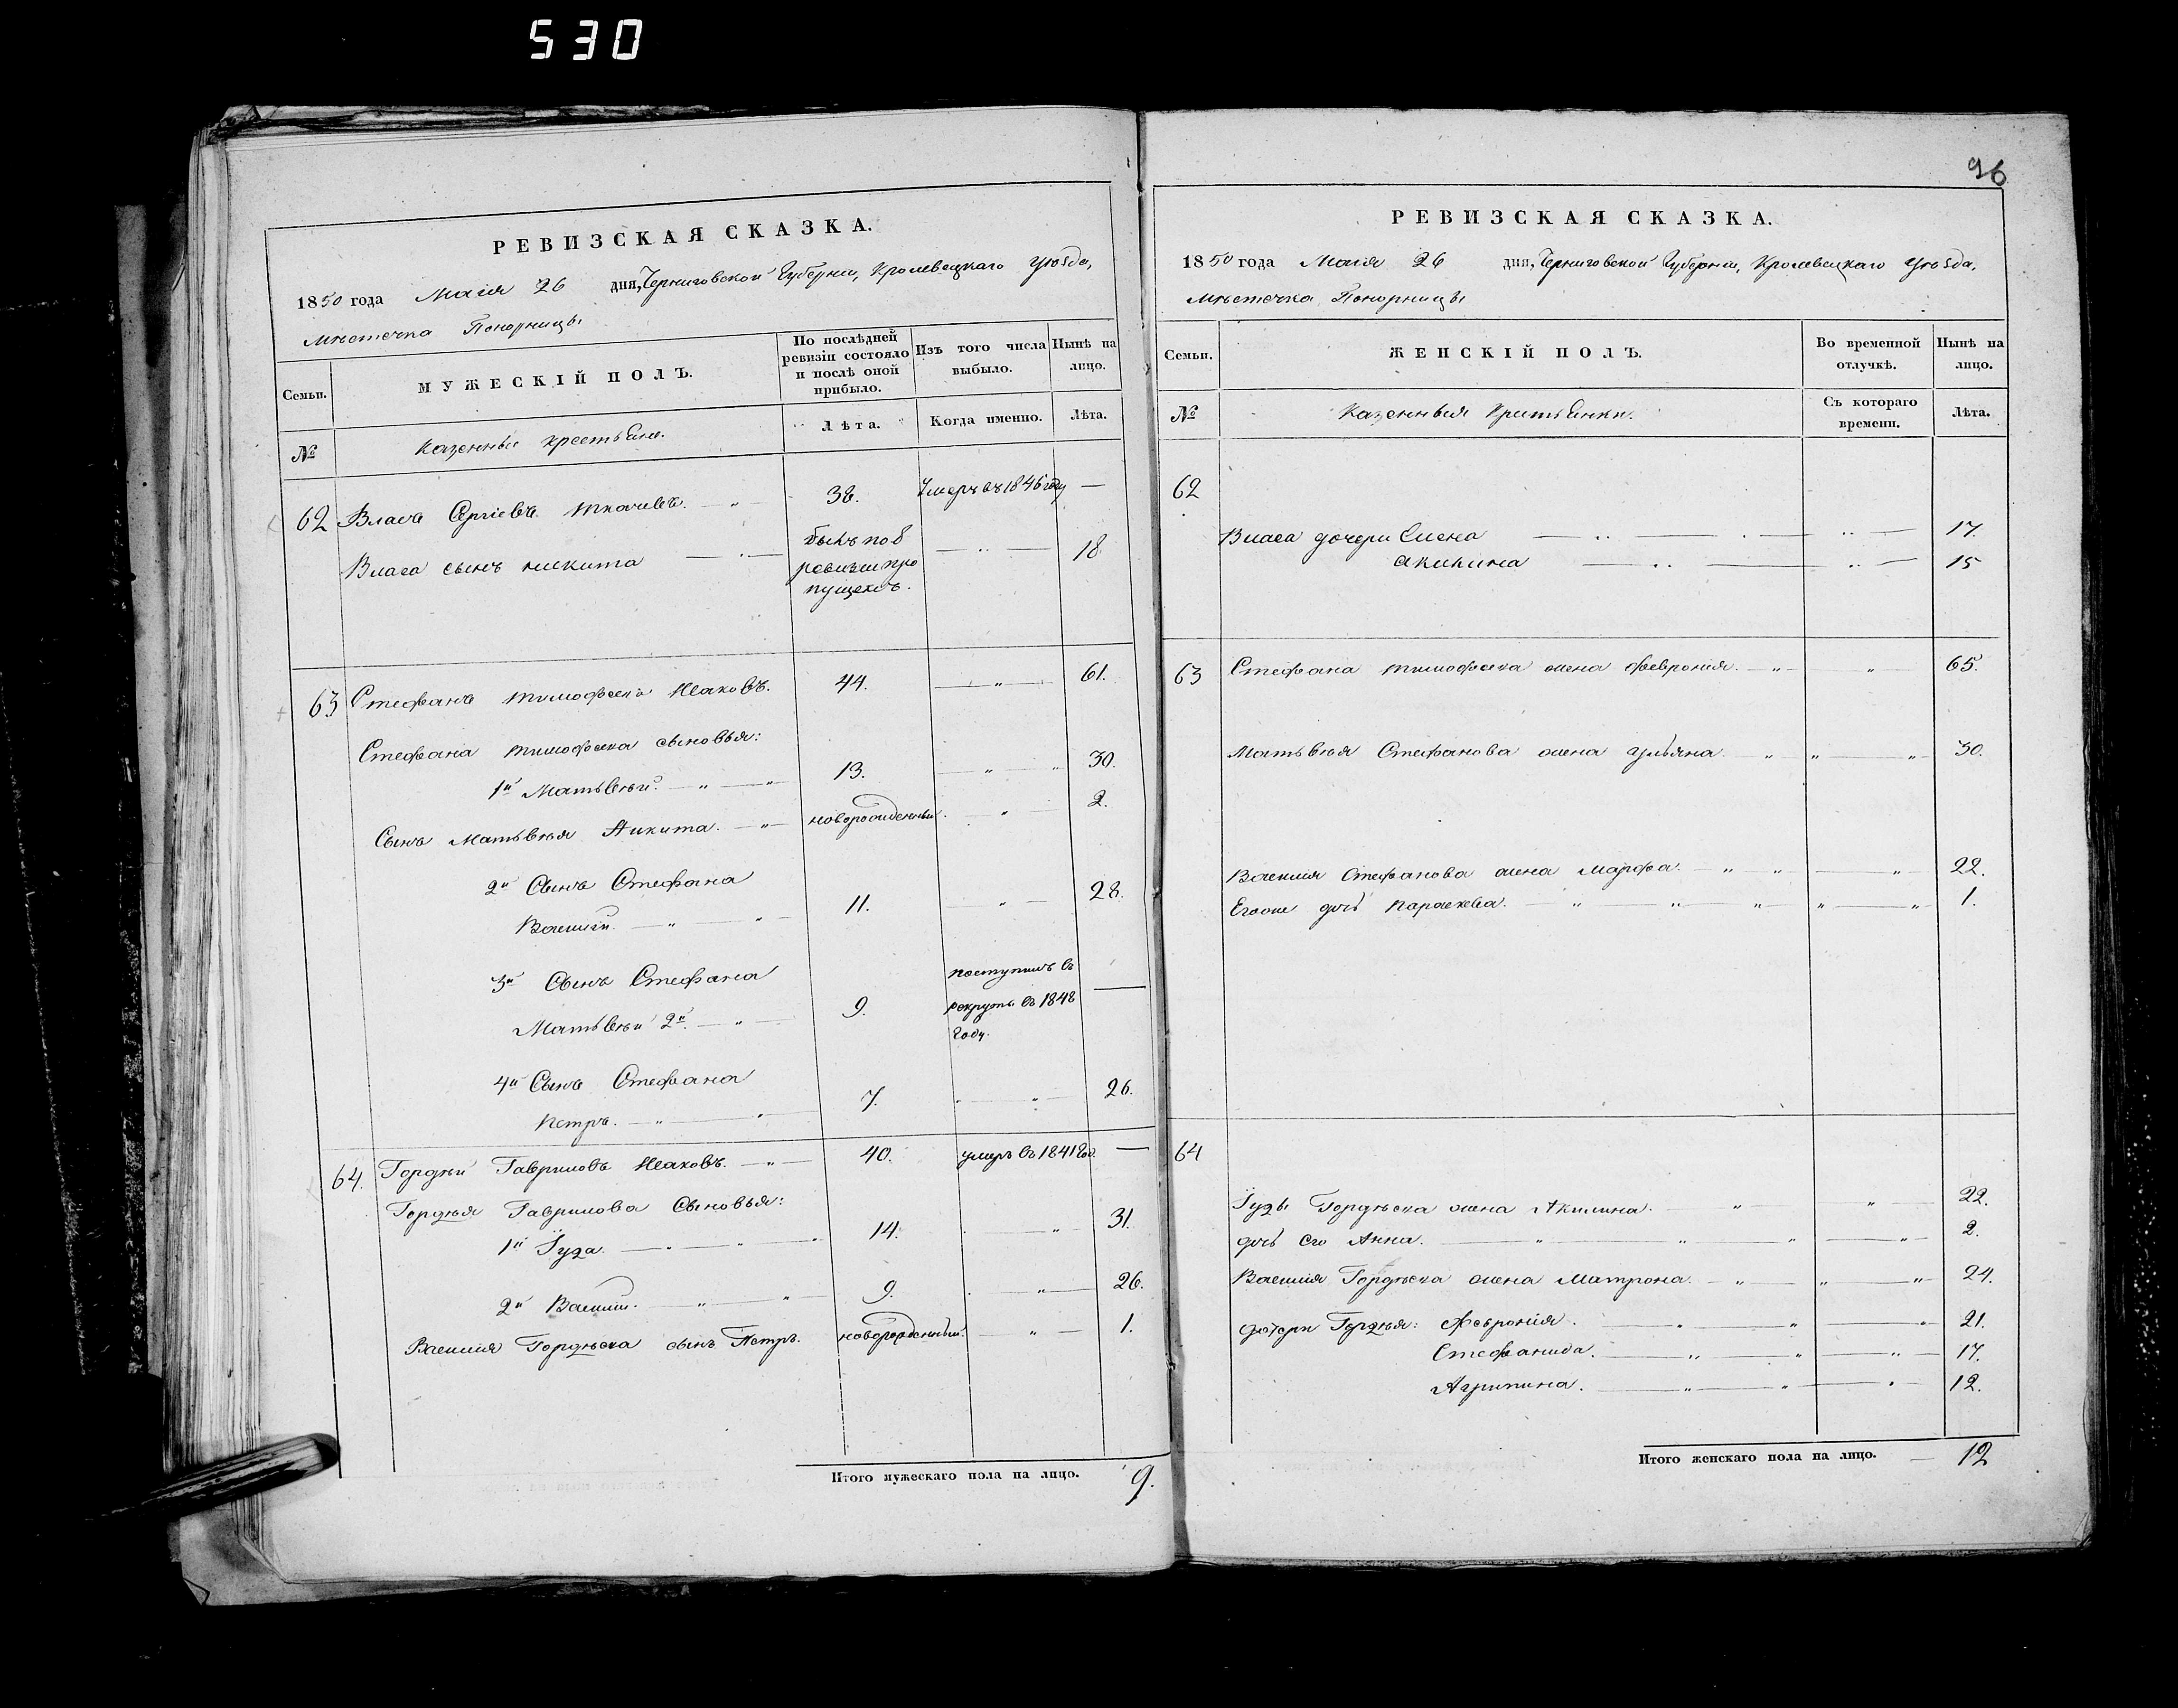 530
РЕВИЗСКАЯ СКАЗКА.
1850 года Маія 26 дня, Черниговской Губерніи, Кролевецкаго Уѣзда,
Мѣстечка Понорницы
Семьи.
МУЖЕСКІЙ ПОЛЪ.
По послѣдней ревизіи состояло и послѣ оной прибыло.
Изъ того числа выбыло.
Нынѣ на лицо.
№
Казенные крестьяне.
Лѣта.
Когда именно.
Лѣта.
62 Власъ Сергіевъ Ткачевъ. 38. Умеръ въ 1846 году —
Власа сынъ Никита былъ по 8 ревизіи пропущенъ. 18
63 Стефанъ Тимофеевъ Исаковъ. 44. 61.
Стефана Тимофеева сыновья:
1й Матьвѣй. 13. 30.
Сынъ Матьвѣя Никита. новорожденный. 2.
2й Сынъ Стефана
Василій. 11. 28.
3й Сынъ Стефана поступилъ въ
Матьвѣй 2й. 9. рекруты въ 1848 —
году.
4й Сынъ Стефана
Петръ. 7. 26.
64. Гордѣй Гавриловъ Исаковъ. 40. умеръ въ 1841 год. —
Гордѣя Гаврилова Сыновья:
1й Іуда. 14. 31.
2й Василій. 9. 26.
Василія Гордѣева сынъ Петръ. новорожденный. 1.
Итого мужескаго пола на лицо. 9.
96
РЕВИЗСКАЯ СКАЗКА.
1850 года Маія 26 дня, Черниговской Губерніи, Кролевецкаго Уѣзда,
Мѣстечка Понорницы
Семьи.
ЖЕНСКІЙ ПОЛЪ.
Во временной отлучкѣ.
Нынѣ на лицо.
№
Казенныя Кристьянки.
Съ котораго времени.
Лѣта.
62
Власа дочери Елена 17.
Акилина 15
63 Стефана Тимофеева жена Февронія. 65.
Матьвѣя Стефанова жена Ульяна. 30.
Василія Стефанова жена Марфа. 22.
Егоже дочь Параскева. 1.
64
Іуды Гордѣева жена Акилина. 22.
дочь его Анна. 2.
Василія Гордѣева жена Матрона. 24.
дочери Гордѣя: Февронія. 21.
Стефанида. 17.
Агрипина. 12.
Итого женскаго пола на лицо. — 12